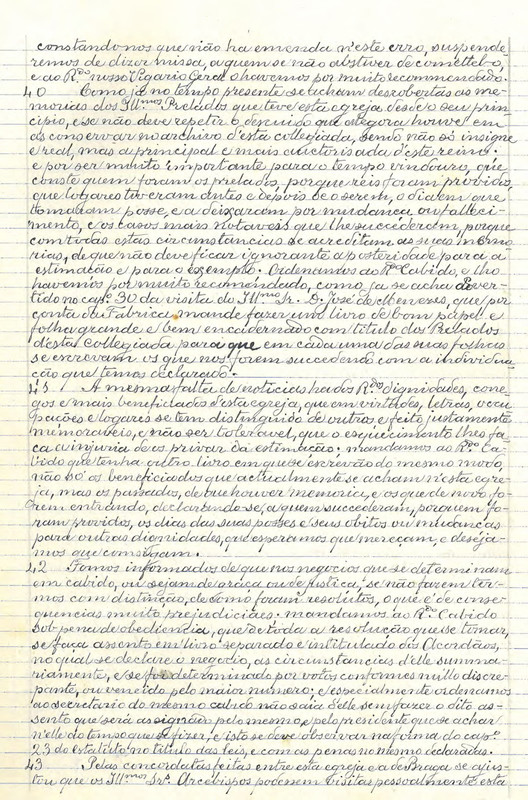 constando-nos que não ha emenda n'este erro, suspende-
remos de dizer missa, a quem se não abstiver de comettel-o,
e ao R.do nosso Vigario Geral o havemos por muito recommendado.
40 Como já no tempo presente se acham descobertas as me-
morias dos Ill.mos Prelados que teve esta egreja, desde o seu prin-
cipio, e se não deve repetir o descuido que até gora houve em
as conservar no archivo d'esta collegiada, sendo não só insigne
e real, mas a principal e mais auctorisada d'este reino:
e por ser muito importante para o tempo vindouro, que
conste quem foram os prelados, porque reis foram providos,
que logares tiveram antes e depois de o serem, o dia em que
tomaram posse, e a deixaram por mudança ou falleci-
mento, e os casos mais notaveis que lhe succederam, porque
com todas estas circunstancias se acreditam as suas memo-
rias, de que não deve ficar ignorante a posteridade para a
estimação e para o exemplo. Ordenamos ao R.do Cabido, e lho
havemos por muito recomendado, como já se acha adver-
tido no cap.º 30 da visita do Ill.mo Sr. D. José de Menezes, que por
conta da Fabrica, mande fazer um livro de bom papel e
folha grande e bem encadernado com titulo dos Prelados
d'esta Collegiada para que em cada uma das suas folhas
se escrevam os que nos forem succedendo com a individua-
ção que temos declarado.
41 A mesma falta de noticias ha dos R.dos dignidades, cone-
gos e mais beneficiados d'esta egreja, que em virtudes, letras, occu-
pações e logares se tem distinguido de outros e feito justamente
memoraveis, e não ser toleravel, que o esquecimento lhes fa-
ça a injuria de os privar da estimação: mandamos ao R.do Ca-
bido que tenha outro livro em que se escrevão do mesmo modo,
não só os beneficiados que actualmente se acham n'esta egre-
ja, mas os passados, de que houver memoria, e os que de novo fo-
rem entrando, declarando-se, a quem succederam, por quem fo-
ram providos, os dias das suas posses e seus obitos ou mudanças
para outras dignidades, que esperamos que mereçam, e deseja-
mos que consigam.
42 Fomos informados de que nos negocios que se determinam
em cabido, ou sejam de graça ou de justiça, se não fazem ter-
mos com distinção, de como foram resolutos, o que é de conse-
quencias muito prejudiciaes: mandamos ao R.do Cabido
sob pena de obediencia, que de toda a resolução que se tomar,
se faça assento em livro separado e intitulado dos Acordãos,
no qual se declare o negocio, as circunstancias d'elle summa-
riamente, e se foi determinado por votos conformes nullo discre-
pante, ou vencido pelo maior numero; e especialmente ordenamos
ao secretario do mesmo cabido não saia d'elle sem fazer o dito as-
sento que será assignado pelo mesmo, e pelo presidente que se achar
n'elle ao tempo que se fizer, e isto se deve observar na forma do cap.º
23 do estatuto no titulo das leis, e com as penas no mesmo declaradas.
43 Pelas concordatas feitas entre esta egreja e a de Braga se ajus-
tou que os Ill.mos Srs. Arcebispos podessem visitar pessoalmente esta